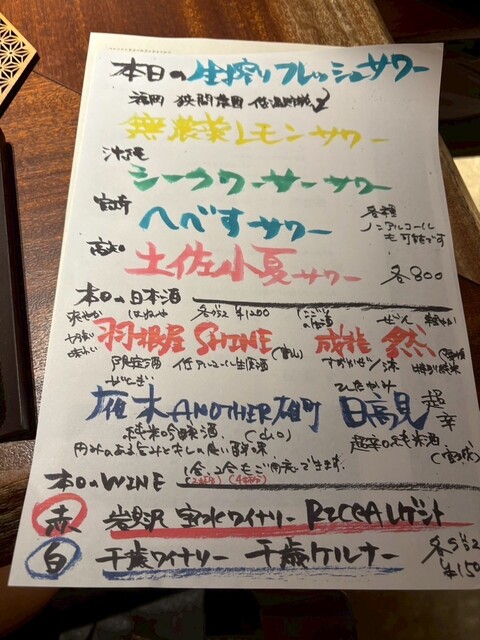 本日の生搾りフレッシュサワー
福岡
無農薬レモンサワー
沖縄
シークワーサーサワー
宮崎
へべすサワー
各種
ノンアルコール
も可能です
高知
土佐小夏サワー
各800
本日の日本酒
各グラス ¥1200
はねや
羽根屋 SHINE
(富山)
限定酒
生原酒
ぜん
然
がんぎ
雁木 ANOTHER 雄町
純米吟醸酒
(山口)
ひたかみ
日高見
超辛
超辛口純米酒
(宮城)
1合、2合もご用意できます。
本日のWINE
赤
岩見沢 宝水ワイナリー RICCAレゲント
白
千歳ワイナリー 千歳ケルナー
各グラス